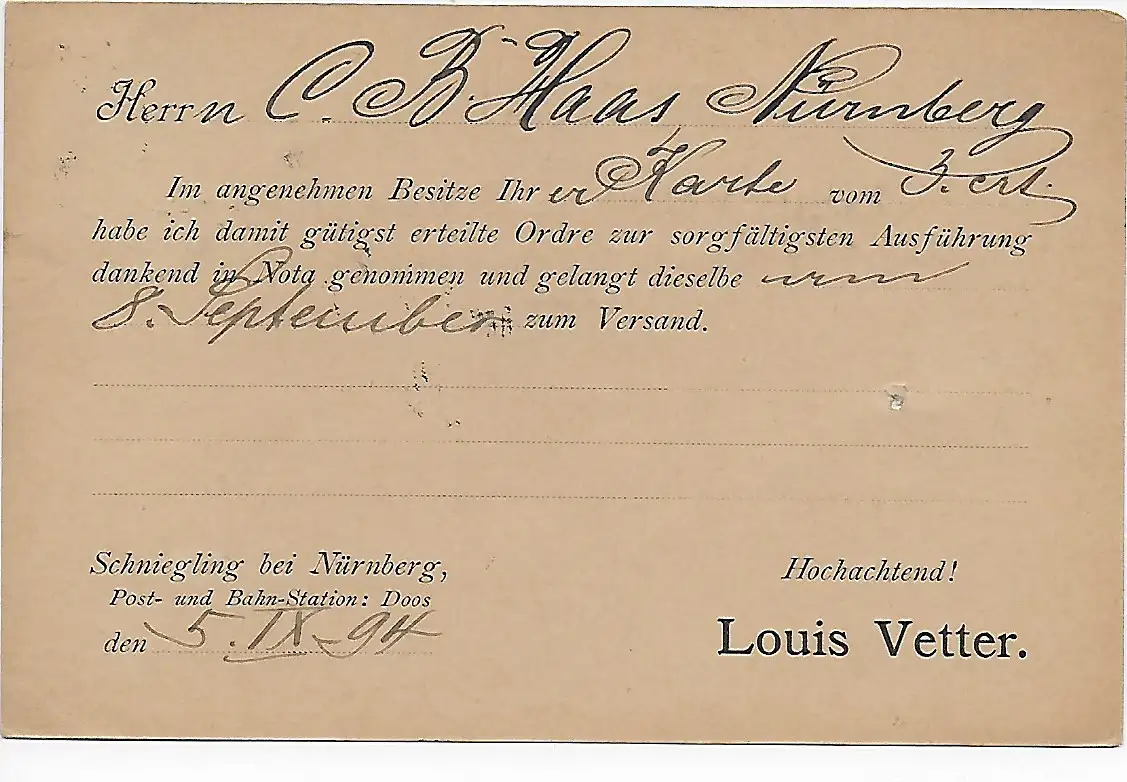 Herrn C. B. Haas, Nürnberg
Im angenehmen Besitze Ihrer Karte vom 3. crt.
habe ich damit gütigst erteilte Ordre zur sorgfältigsten Ausführung
dankend in Nota genommen und gelangt dieselbe
8. September zum Versand.
Schniegling bei Nürnberg,
Post- und Bahn-Station: Doos
den 5. IX - 94
Hochachtend!
Louis Vetter.